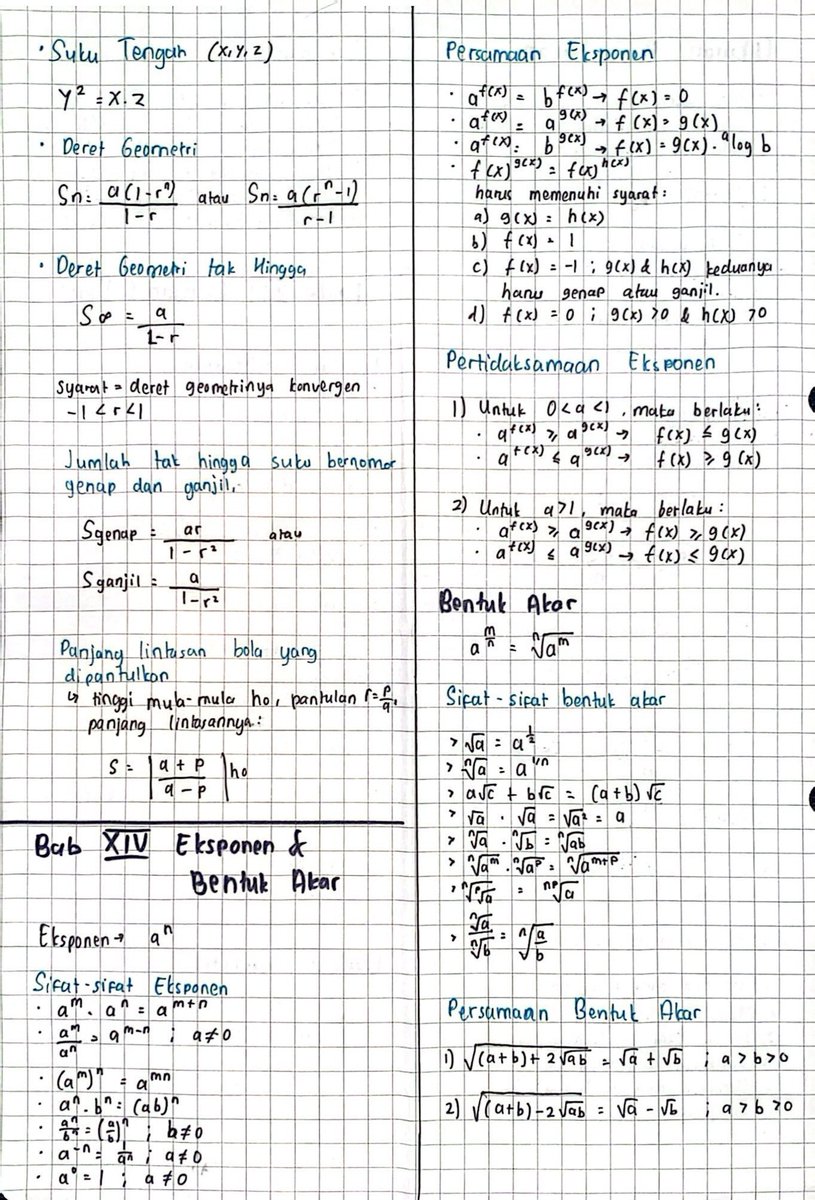 • Suku Tengah (x, y, z)
y² = x . z
• Deret Geometri
Sn = a(1-rⁿ)/1-r atau Sn = a(rⁿ-1)/r-1
• Deret Geometri tak Hingga
S∞ = a/1-r
syarat = deret geometrinya konvergen
-1 < r < 1
Jumlah tak hingga suku bernomor
genap dan ganjil.
Sgenap = ar/1-r² atau
Sganjil = a/1-r²
Panjang lintasan bola yang
dipantulkan
↳ tinggi mula-mula ho, pantulan r = p/q,
panjang lintasannya:
S = |a + p/a - p| ho
Bab XIV Eksponen &
Bentuk Akar
Eksponen → aⁿ
Sifat-sifat Eksponen
• aᵐ . aⁿ = aᵐ⁺ⁿ
• aᵐ/aⁿ = aᵐ⁻ⁿ ; a≠0
• (aᵐ)ⁿ = aᵐⁿ
• aⁿ . bⁿ = (ab)ⁿ
• aⁿ/bⁿ = (a/b)ⁿ ; b≠0
• a⁻ⁿ = 1/aⁿ ; a≠0
• a⁰ = 1 ; a≠0
Persamaan Eksponen
• a^f(x) = b^f(x) → f(x) = 0
• a^f(x) = a^g(x) → f(x) = g(x)
• a^f(x) = b^g(x) → f(x) = g(x) . ᵃlog b
• f(x)^g(x) = f(x)^h(x)
harus memenuhi syarat:
a) g(x) = h(x)
b) f(x) = 1
c) f(x) = -1 ; g(x) & h(x) keduanya
harus genap atau ganjil.
d) f(x) = 0 ; g(x) >0 & h(x) >0
Pertidaksamaan Eksponen
1) Untuk 0<a<1, maka berlaku:
• a^f(x) ≥ a^g(x) → f(x) ≤ g(x)
• a^f(x) ≤ a^g(x) → f(x) ≥ g(x)
2) Untuk a>1, maka berlaku:
• a^f(x) ≥ a^g(x) → f(x) ≥ g(x)
• a^f(x) ≤ a^g(x) → f(x) ≤ g(x)
Bentuk Akar
a^m/n = ⁿ√aᵐ
Sifat-sifat bentuk akar
> √a = a^1/2
> ⁿ√a = a^1/n
> a√c + b√c = (a+b)√c
> √a . √a = √a² = a
> ⁿ√a . ⁿ√b = ⁿ√ab
> ⁿ√aᵐ . ⁿ√aᵖ = ⁿ√aᵐ⁺ᵖ
> ⁿ√ᵖ√a = ⁿᵖ√a
> ⁿ√a/ⁿ√b = ⁿ√a/b
Persamaan Bentuk Akar
1) √(a+b)+2√ab = √a + √b ; a > b > 0
2) √(a+b)-2√ab = √a - √b ; a > b > 0